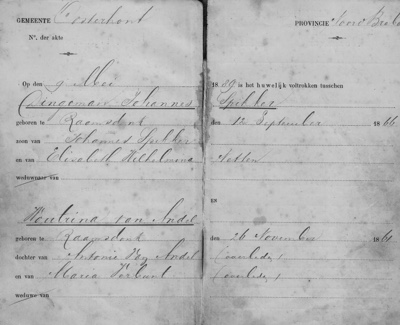 GEMEENTE Oosterhout PROVINCIE Noord Brab
N°. der akte
Op den 9 Mei 1889 is het huwelijk voltrokken tusschen
Dingeman Johannes Spekker
geboren te Raamsdonk den 12 September 1866
zoon van Johannes Spekker
en van Elisabeth Wilhelmina
weduwnaar van
18
Woutrina van Andel
geboren te Raamsdonk den 26 November 1861
dochter van Antonie van Andel (overleden)
en van Maria (overleden)
weduwe van